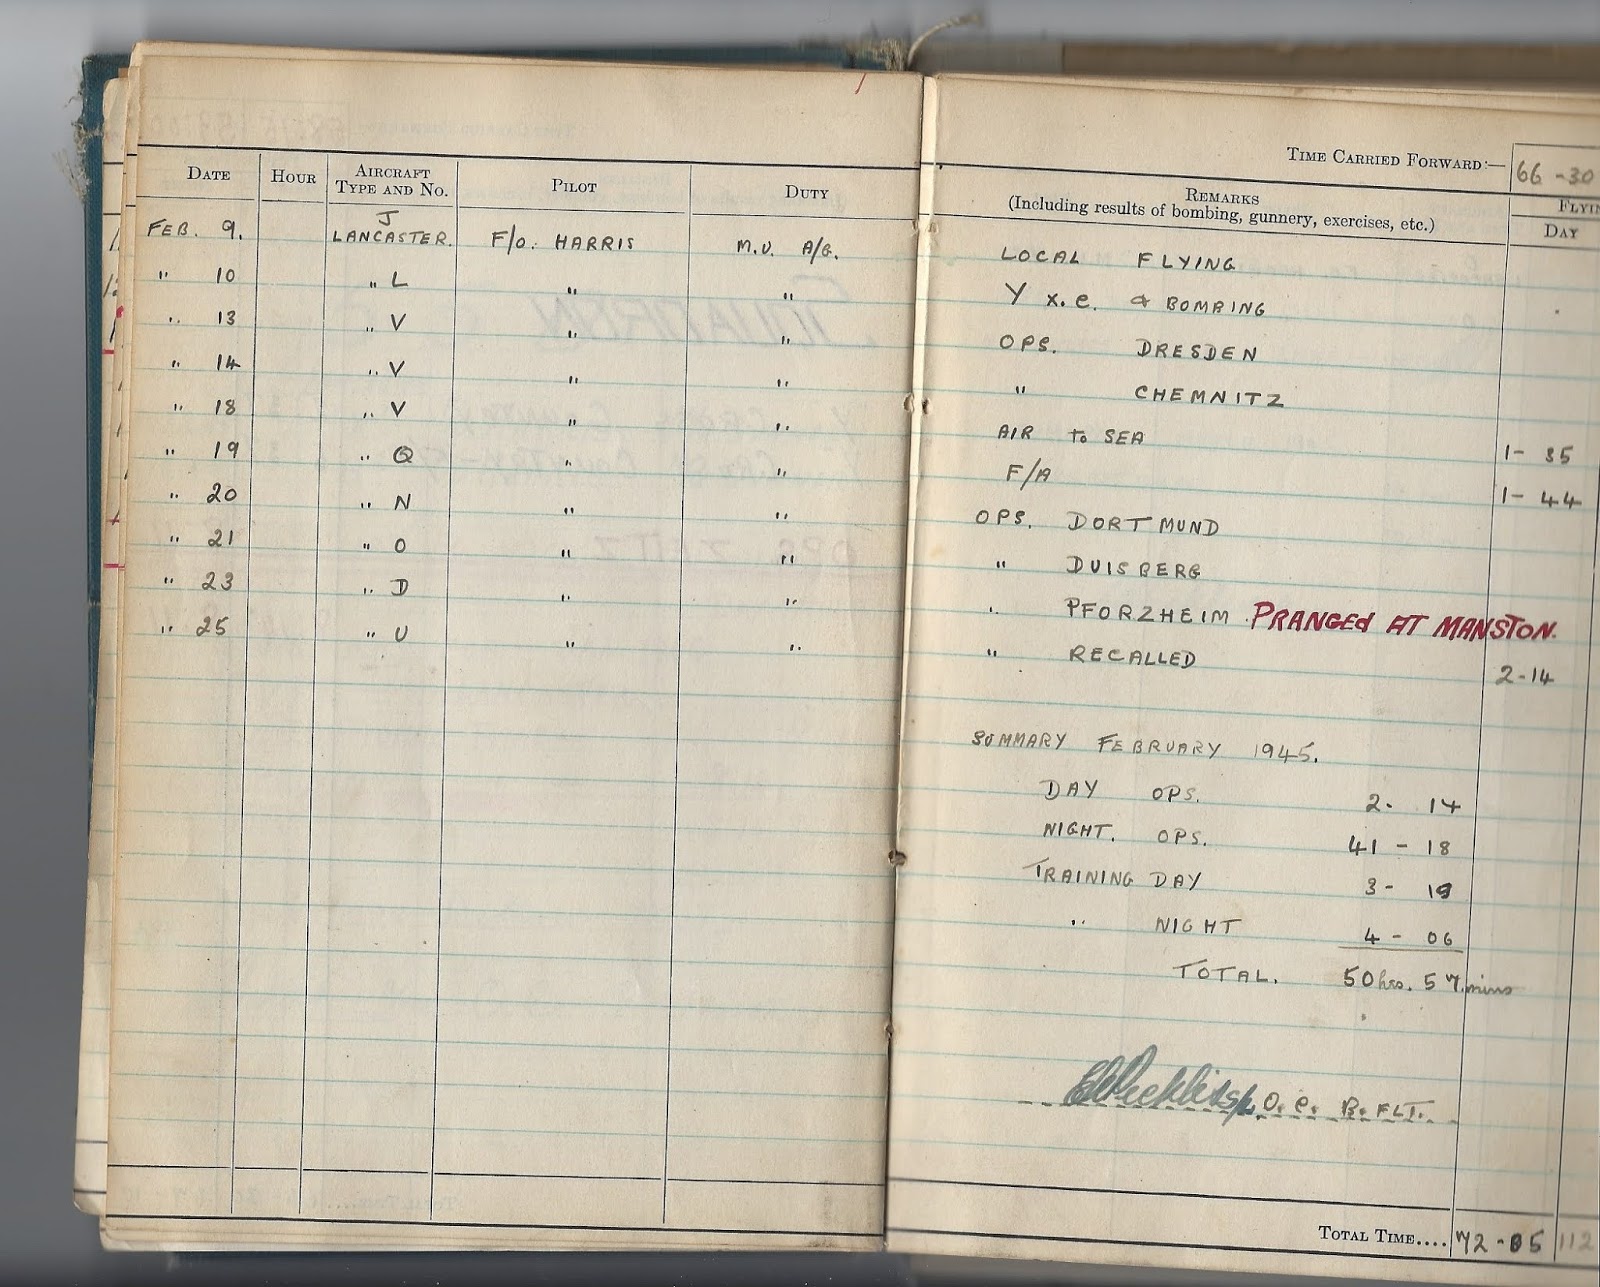 TIME CARRIED FORWARD:— 66-30
DATE HOUR AIRCRAFT TYPE AND NO. PILOT DUTY REMARKS (Including results of bombing, gunnery, exercises, etc.) DAY
FEB. 9. J LANCASTER. F/O. HARRIS M.U. A/G. LOCAL FLYING
" 10 " L " " Y x.c. & BOMBING
" 13 " V " " OPS. DRESDEN
" 14 " V " " " CHEMNITZ
" 18 " V " " AIR TO SEA 1-35
" 19 " Q " " F/A 1-44
" 20 " N " " OPS. DORTMUND
" 21 " O " " " DUISBERG
" 23 " D " " " PFORZHEIM PRANGED AT MANSTON.
" 25 " U " " " RECALLED 2-14
SUMMARY FEBRUARY 1945.
DAY OPS. 2. 14
NIGHT. OPS. 41 - 18
TRAINING DAY 3- 19
" NIGHT 4 - 06
TOTAL. 50 hrs. 57 mins
O.C. B. FLT.
TOTAL TIME.... 72-05 112